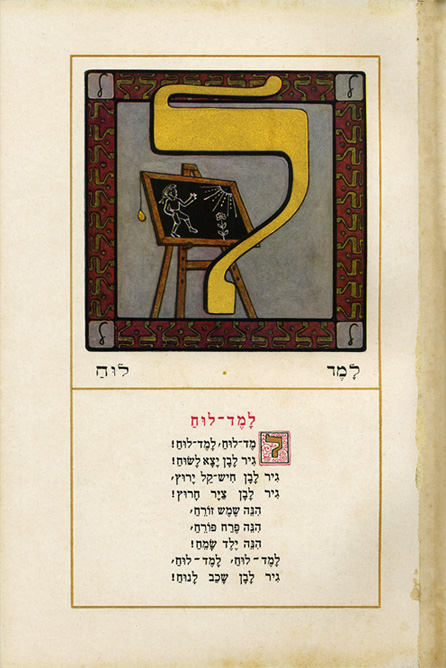 לָמֶד לוּחַ
לָמֶד-לוּחַ
לָמֶד-לוּחַ, לָמֶד-לוּחַ!
גִּיר לָבָן יָצָא לָשׂוּחַ!
גִּיר לָבָן חִישׁ-קַל יָרוּץ,
גִּיר לָבָן צִיֵּר חָרוּץ!
הִנֵּה שֶׁמֶשׁ זוֹרֵחַ,
הִנֵּה פֶּרַח פּוֹרֵחַ,
הִנֵּה יֶלֶד שָׂמֵחַ!
לָמֶד-לוּחַ, לָמֶד-לוּחַ,
גִּיר לָבָן שָׁכַב לָנוּחַ!